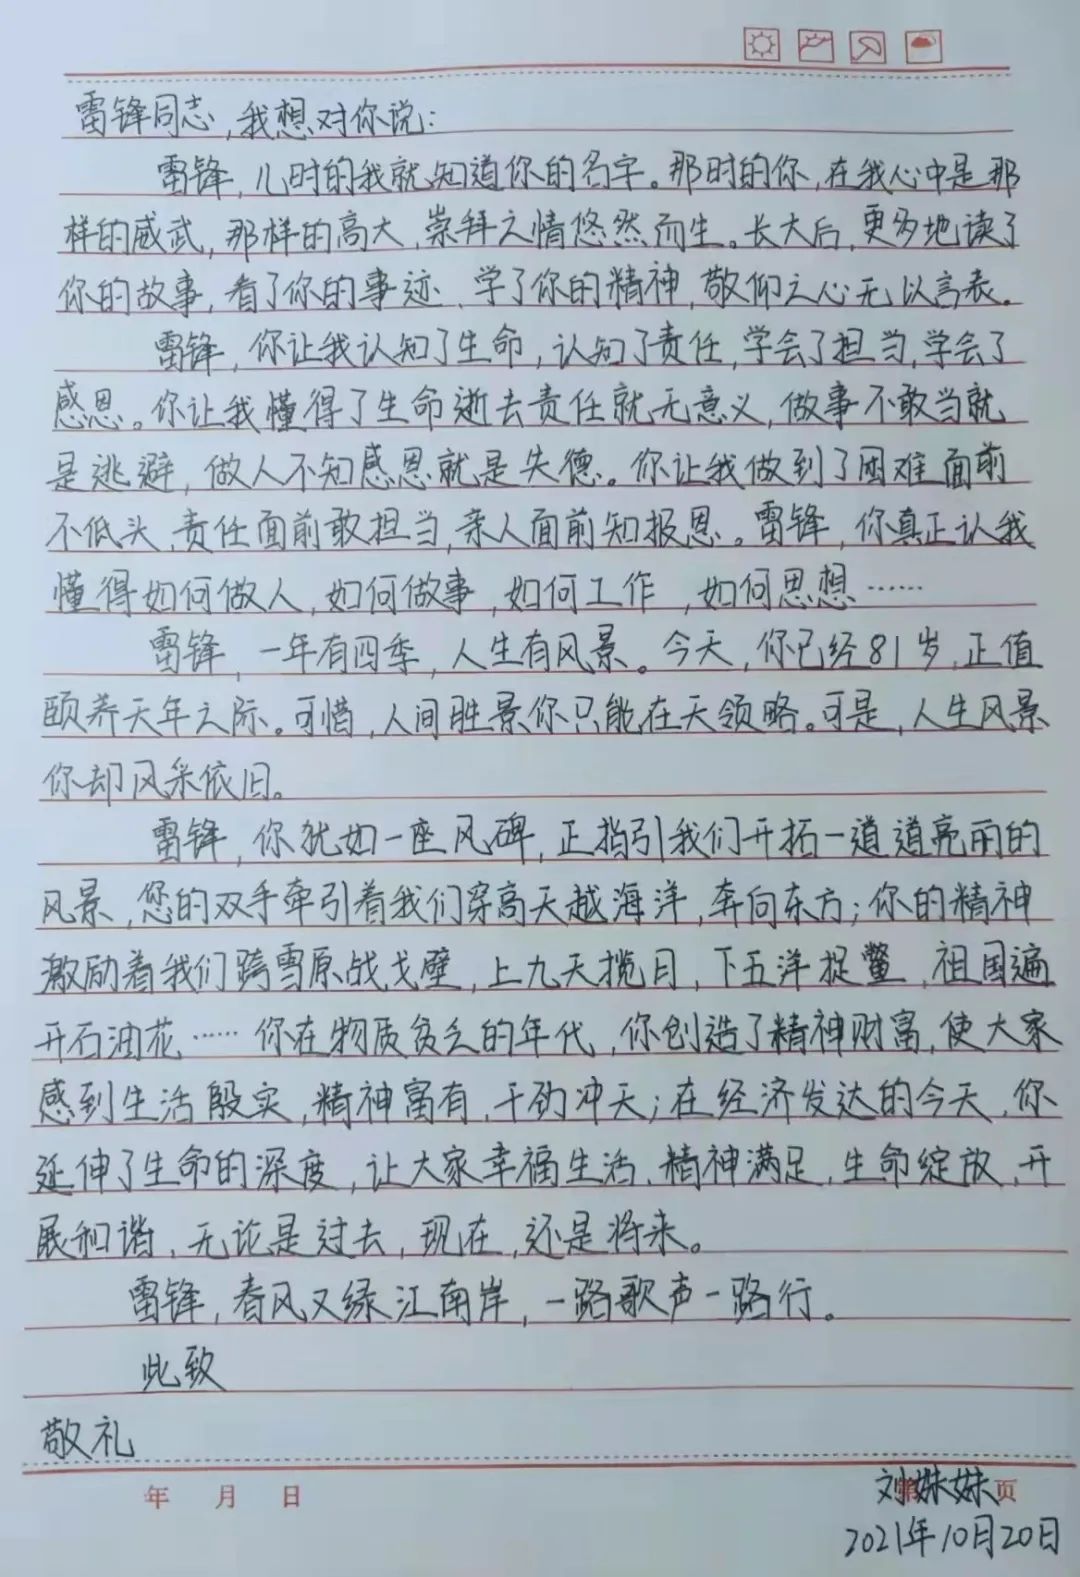 雷锋同志,我想对你说:
雷锋,儿时的我就知道你的名字。那时的你,在我心中是那
样的威武,那样的高大,崇拜之情悠然而生。长大后,更多地读了
你的故事,看了你的事迹、学了你的精神,敬仰之心无以言表。
雷锋,你让我认知了生命,认知了责任,学会了担当,学会了
感恩。你让我懂得了生命逝去责任就无意义,做事不敢当就
是逃避,做人不知感恩就是失德。你让我做到了困难面前
不低头、责任面前敢担当,亲人面前知报恩。雷锋,你真正认我
懂得如何做人,如何做事,如何工作,如何思想……
雷锋,一年有四季,人生有风景。今天,你已经81岁,正值
颐养天年之际。可惜,人间胜景你只能在天领略。可是,人生风景
你却风采依旧。
雷锋,你犹如一座风碑,正指引我们开拓一道道亮丽的
风景,您的双手牵引着我们穿高天越海洋,奔向东方;你的精神
激励着我们跨雪原战戈壁,上九天揽月,下五洋捉鳖,祖国遍
开石油花……你在物质贫乏的年代,你创造了精神财富,使大家
感到生活殷实,精神富有,干劲冲天;在经济发达的今天,你
延伸了生命的深度,让大家幸福生活,精神满足,生命绽放,开
展和谐,无论是过去,现在,还是将来。
雷锋,春风又绿江南岸,一路歌声一路行。
此致
敬礼
年 月 日 刘姝妹 页
2021年10月20日